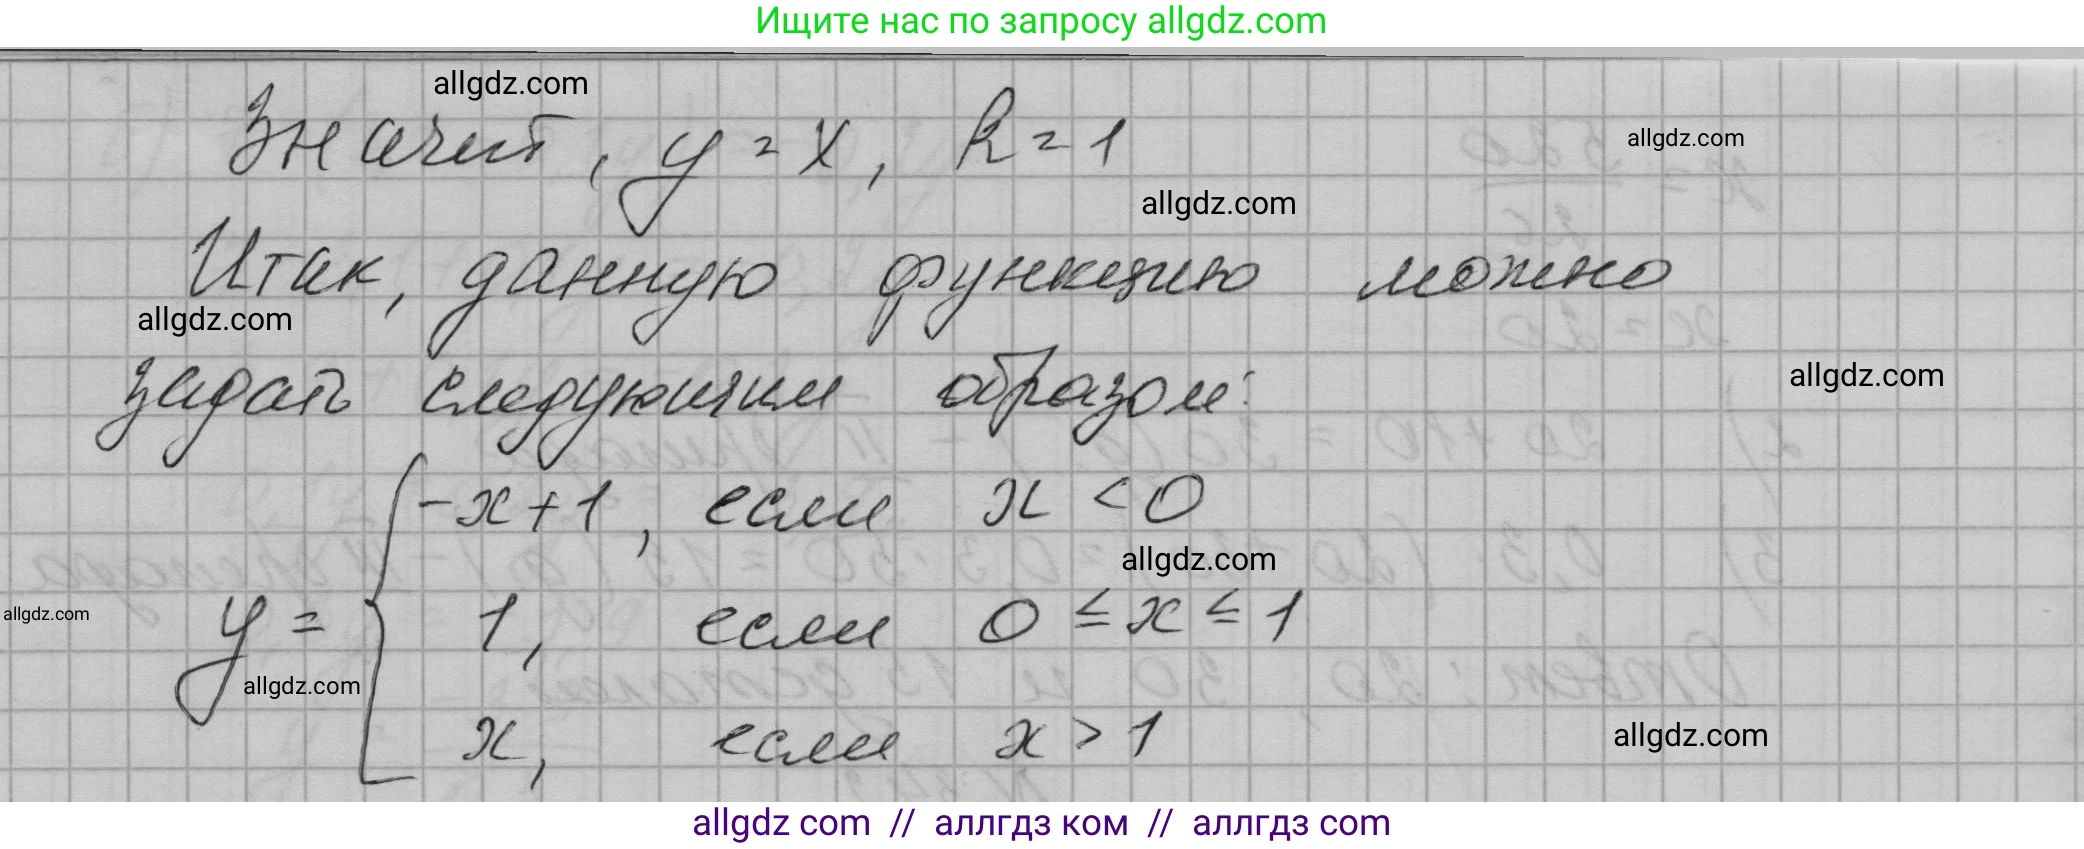 Ищите нас по запросу allgdz.com
allgdz.com
Значит, y = x, k = 1
allgdz.com
allgdz.com
Итак, данную функцию можно
allgdz.com
задать следующим образом:
allgdz.com
-x+1, если x < 0
allgdz.com
allgdz.com
y = { 1, если 0 ≤ x ≤ 1
allgdz.com
x, если x > 1
allgdz.com
allgdz com // аллгдз ком // аллгдз com